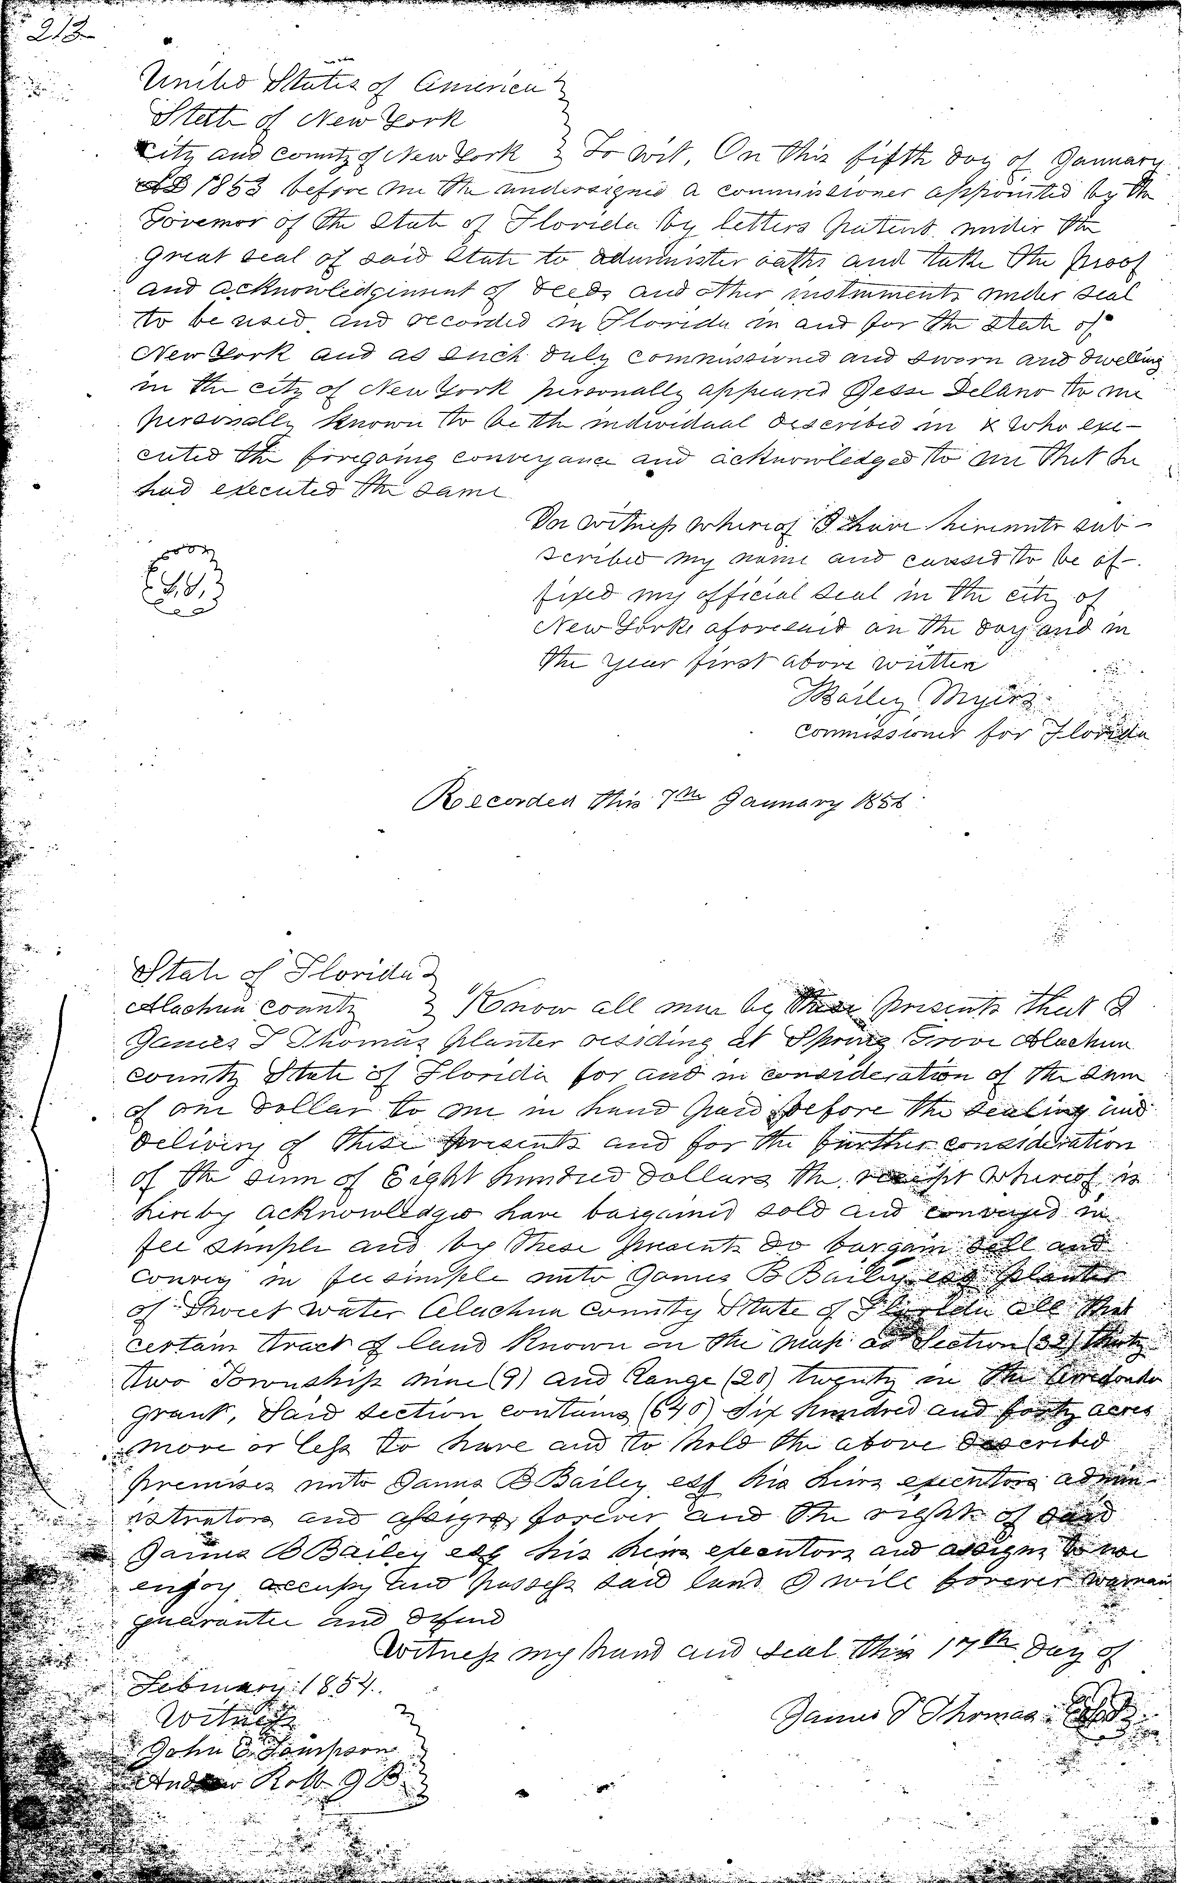 213
United States of America
State of New York
City and county of New York To wit, On this fifth day of January
AD 1853 before me the undersigned a commissioner appointed by the
Governor of the State of Florida by letters patent under the
great seal of said State to administer oaths and take the proof
and acknowledgement of deeds and other instruments under seal
to be used and recorded in Florida in and for the State of
New York and as such duly commissioned and sworn and dwelling
in the city of New York personally appeared Jesse Delano to me
personally known to be the individual described in & who exe-
cuted the foregoing conveyance and acknowledged to me that he
had executed the same
In witness whereof I have hereunto sub-
scribed my name and caused to be af-
fixed my official seal in the city of
New York aforesaid on the day and in
the year first above written
Bailey Myers
Commissioner for Florida
Recorded this 7th January 185
State of Florida
Alachua County Know all men by these presents that I
James T Thomas planter residing at Spring Grove Alachua
county State of Florida for and in consideration of the sum
of one dollar to me in hand paid before the sealing and
delivery of these presents and for the further consideration
of the sum of Eight hundred dollars the receipt whereof is
hereby acknowledged have bargained sold and conveyed in
fee simple and by these presents do bargain sell and
convey in fee simple unto James B Bailey esq planter
of Sweet water Alachua County State of Florida all that
certain tract of land Known on the map as Section (32) thirty
two Township nine (9) and Range (20) twenty in the Arredondo
grant, Said section contains (640) Six hundred and forty acres
more or less to have and to hold the above described
premises unto James B Bailey esq his heirs executors admin-
istrators and assigns forever and the right of said
James B Bailey esq his heirs executors and assigns to use
enjoy occupy and possess said land I will forever warrant
guarantee and defend
Witness my hand and seal this 17th day of
February 1854.
Witness James T Thomas
John E Tompson
Andrew Robb J P.